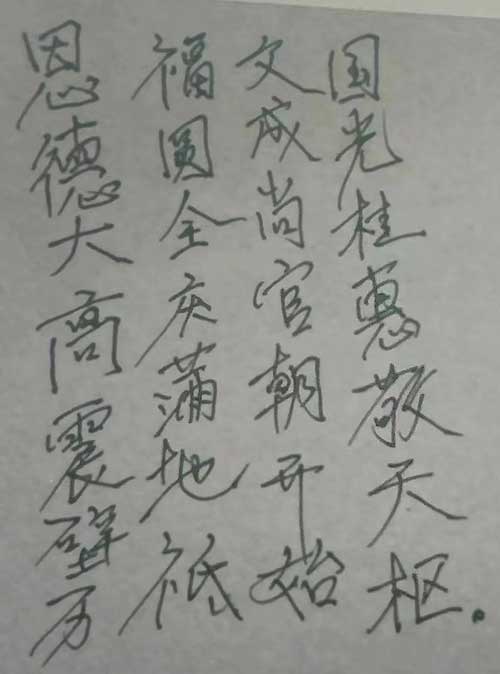 恩德大高震壁万
福圆全庆蒲地祇
文成尚官朝开始
国光桂惠散天枢.